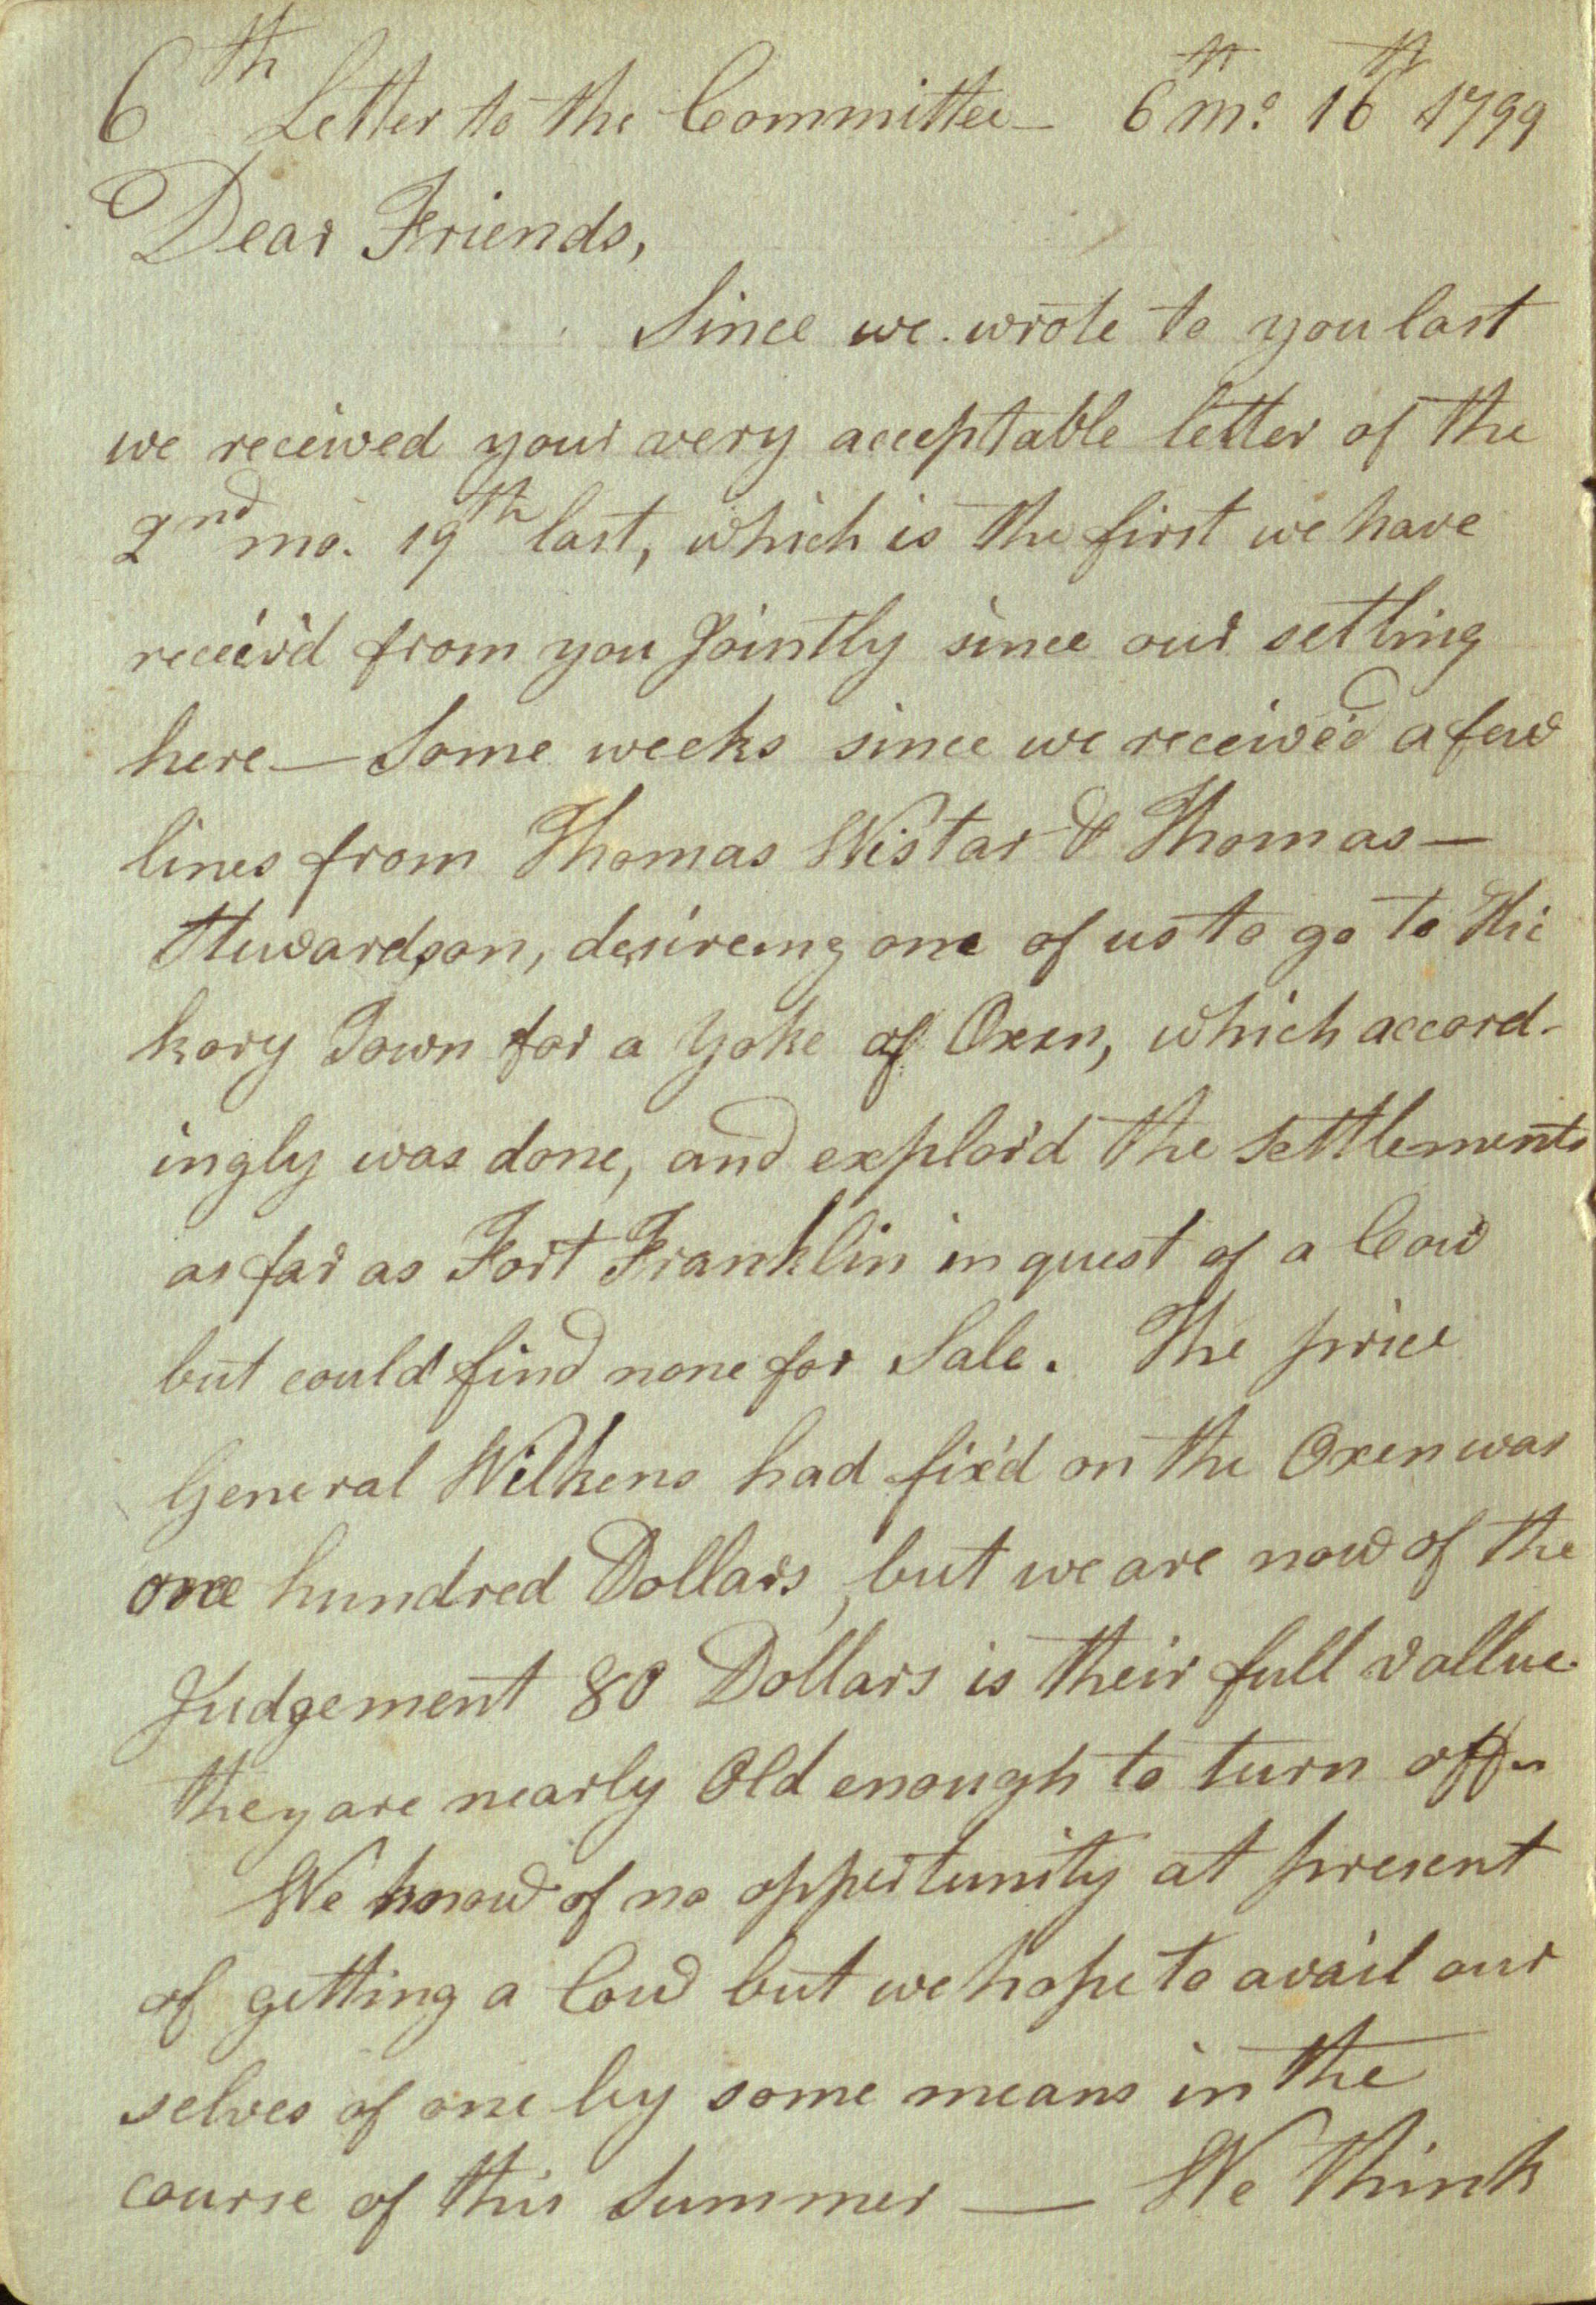 6th Letter to the Committee — 6th mo. 16th 1799
Dear Friends,
Since we wrote to you last
we received your very acceptable letter of the
2nd mo. 19th last, which is the first we have
receiv'd from you Jointly since our setling
here — Some weeks since we receive'd a few
lines from Thomas Wistar & Thomas —
Stuwardson, desireing one of us to go to Hic
kory Town for a Yoke of Oxen, which accord-
ingly was done, and explor'd the settlements
as far as Fort Franklin in quest of a Cow
but could find none for Sale. The price
General Wilkens had fix'd on the Oxen was
one hundred Dollars, but we are now of the
Judgement 80 Dollars is their full vallue
they are nearly Old enough to turn off —
We know of no oppertunity at present
of getting a Cow but we hope to avail our
selves of one by some means in the
course of this Summer — We think